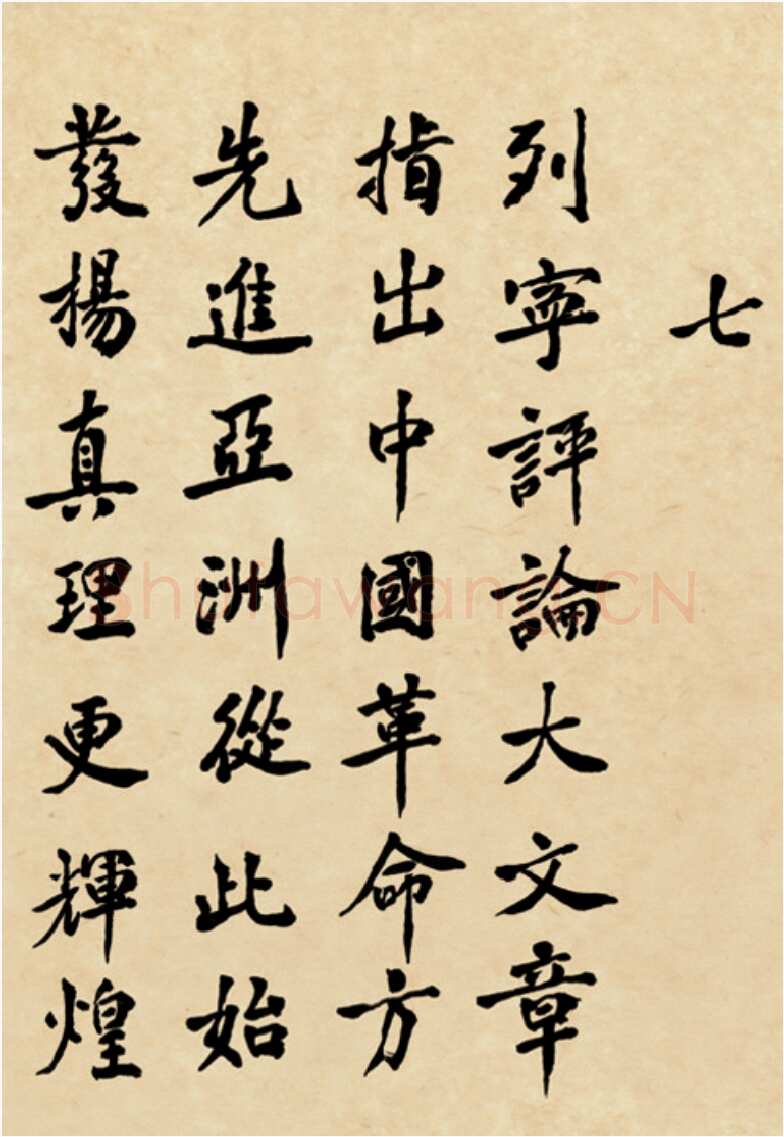 七
列寧評論大文章
指出中國革命方
先進亞洲從此始
發揚真理更輝煌
Shufawang.CN